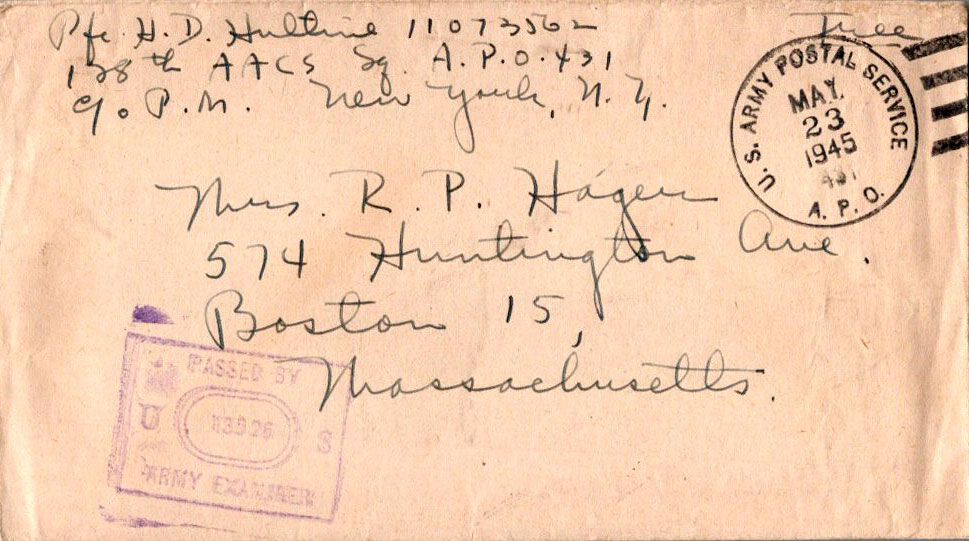 Pfc. H. D. Hultine 11073502
Free
138th AACS Sq. A.P.O. 431
% P.M. New York, N.Y.
U.S. ARMY POSTAL SERVICE
MAY
23
1945
A.P.O.
Mrs. R. P. Hager
574 Huntington Ave.
Boston 15,
Massachusetts.
PASSED BY
U S
ARMY EXAMINER